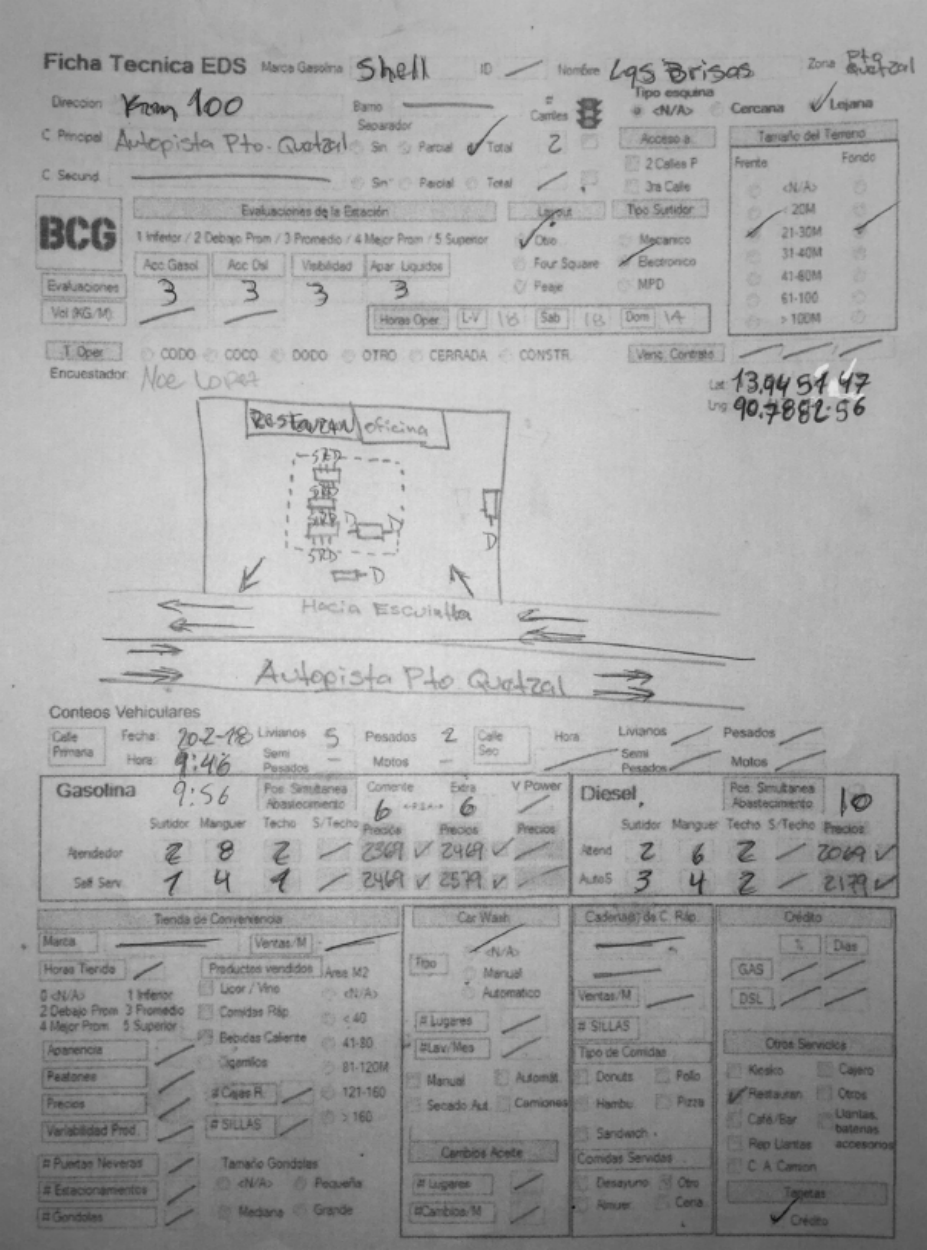 Ficha Tecnica EDS Marca Gasolina Shell ID Nombre Las Brisas Zona Pto Quetzal
Direccion Km 100 Barrio # Carriles Tipo esquina <N/A> Cercana Lejana
C Principal Autopista Pto. Quetzal Separador Sin Parcial Total 2 Acceso a: Tamaño del Terreno
2 Calles P Frente Fondo
C Secund. Sin Parcial Total 3ra Calle <N/A>
BCG Evaluaciones de la Estación Layout Tipo Surtidor < 20M
1 Inferior / 2 Debajo Prom / 3 Promedio / 4 Mejor Prom / 5 Superior Otro Mecanico 21-30M
Acc Gasol Acc Dsl Visibilidad Apar. Liquidos Four Square Electronico 31-40M
Evaluaciones 3 3 3 3 Peaje MPD 41-60M
61-100
Vol (KG/M) Horas Oper. L-V 18 Sab 18 Dom 14 > 100M
T. Oper CODO COCO DODO OTRO CERRADA CONSTR. Venc. Contrato
Encuestador: Noe Lopez Lat 13.945147
Lng 90.788256
RESTAURAN oficina
SRD
SRD
SRD D D
SRD D
D
Hacia Escuintla
Autopista Pto Quetzal
Conteos Vehiculares
Calle Primaria Fecha: 20-2-18 Livianos 5 Pesados 2 Calle Sec Hora Livianos Pesados
Hora: 9:46 Semi Pesados - Motos - Semi Pesados Motos
Gasolina 9:56 Pos. Simultanea Abastecimiento Corriente 6 Extra 6 V Power Diesel Pos. Simultanea Abastecimiento 10
Surtidor Manguer Techo S/Techo Precios Precios Precios Surtidor Manguer Techo S/Techo Precios
Atendedor 2 8 2 2369 2469 Atend 2 6 2 2069
Self Serv. 1 4 1 2469 2579 AutoS 3 4 2 2179
Tienda de Conveniencia Car Wash Cadena(s) de C. Ráp. Crédito
Marca Ventas/M <N/A> % Dias
Horas Tienda Productos vendidos Area M2 Tipo Manual GAS
0 <N/A> 1 Inferior Licor / Vino <N/A> Automatico Ventas/M DSL
2 Debajo Prom 3 Promedio Comidas Ráp < 40 # Lugares # SILLAS
4 Mejor Prom 5 Superior Bebidas Caliente 41-80 #Lav/Mes Tipo de Comidas Otros Servicios
Apariencia Cigarrillos 81-120M Manual Automát. Donuts Pollo Kiosko Cajero
Peatones # Cajas R. 121-160 Secado Aut. Camiones Hambu. Pizza Restauran Otros
Precios # SILLAS > 160 Sandwich Café/Bar Llantas, baterias accesorios
Variabilidad Prod. Cambios Aceite Comidas Servidas Rep Llantas
# Puertas Neveras Tamaño Gondolas # Lugares Desayuno Otro C. A. Camion
# Estacionamientos <N/A> Pequeña #Cambios/M Almuer. Cena Tarjetas
# Gondolas Mediana Grande Crédito